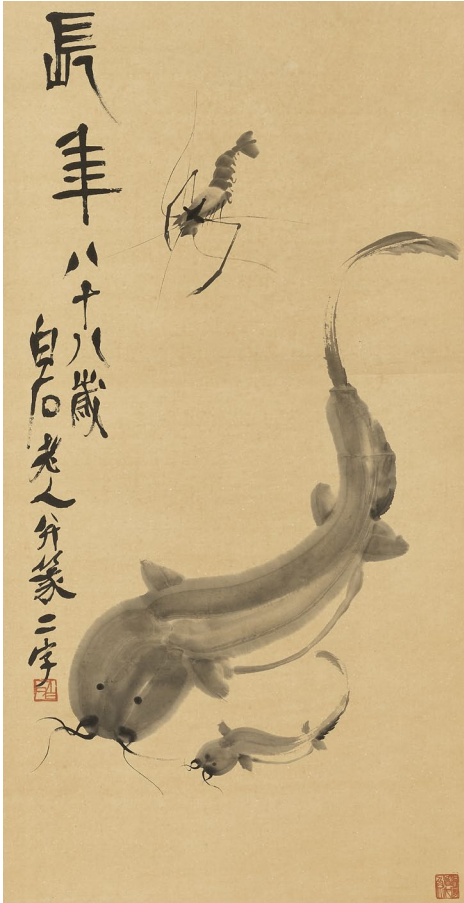 長年
八十八歲
白石老人并篆二字